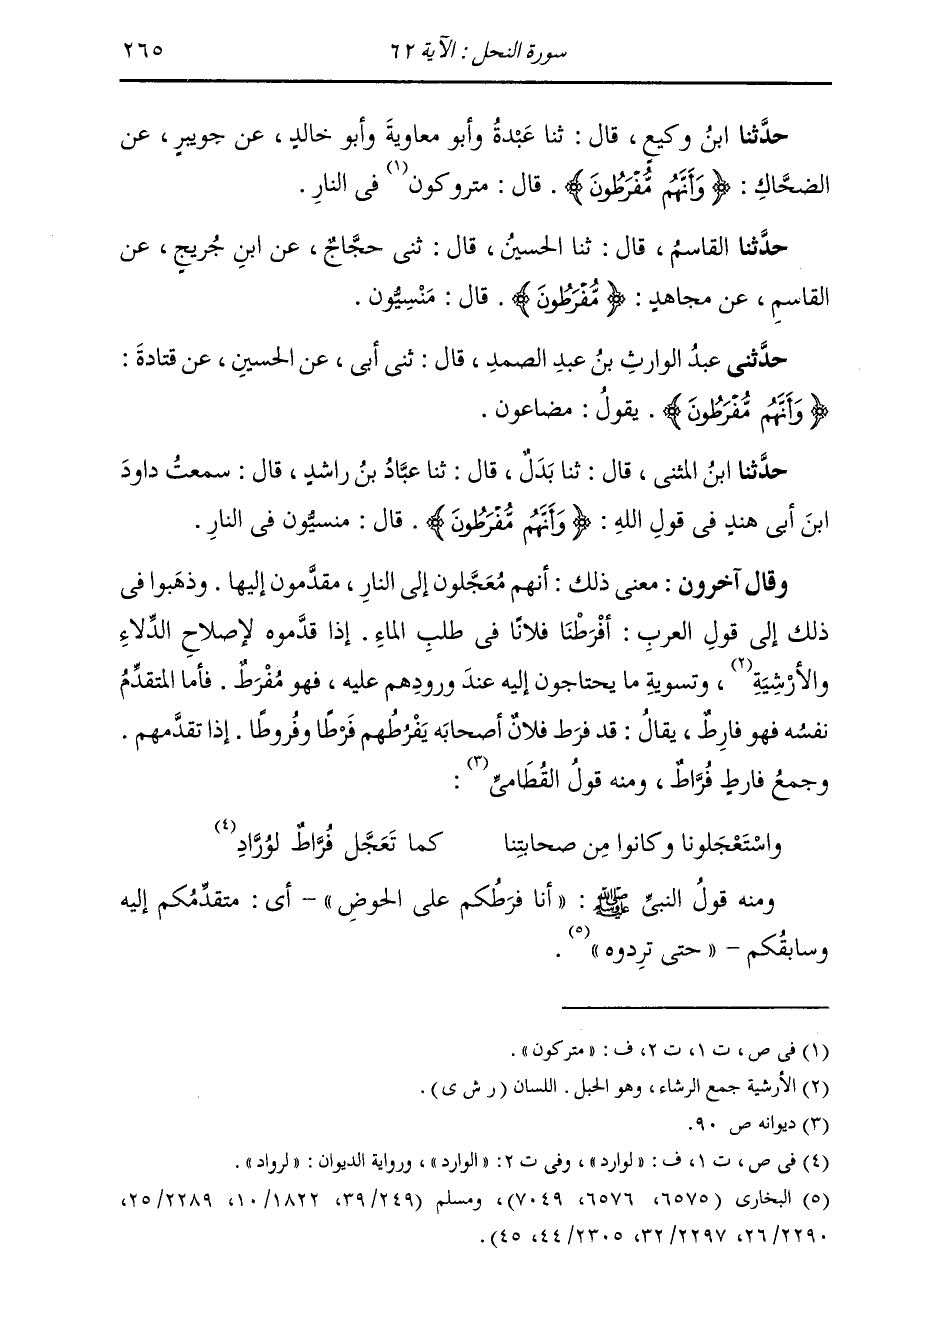 سورة النحل : الآية ٦٢ ٢٦٥
حدَّثنا ابنُ وكيعٍ ، قال : ثنا عَبْدةُ وأبو معاويةَ وأبو خالدٍ ، عن جويبرٍ ، عن
الضحَّاكِ : ﴿ وَأَنَّهُم مُّفْرَطُونَ ﴾ . قال : متروكون(١) فى النارِ .
حدَّثنا القاسمُ ، قال : ثنا الحسينُ ، قال : ثنى حجَّاجٌ ، عن ابنِ جُريجٍ ، عن
القاسمِ ، عن مجاهدٍ : ﴿ مُّفْرَطُونَ ﴾ . قال : مَنْسِيُّون .
حدَّثنى عبدُ الوارثِ بنُ عبدِ الصمدِ ، قال : ثنى أبى ، عن الحسينِ ، عن قتادةَ :
﴿ وَأَنَّهُم مُّفْرَطُونَ ﴾ . يقولُ : مضاعون .
حدَّثنا ابنُ المثنى ، قال : ثنا بَدَلٌ ، قال : ثنا عبَّادُ بنُ راشدٍ ، قال : سمعتُ داودَ
ابنَ أبى هندٍ فى قولِ اللهِ : ﴿ وَأَنَّهُم مُّفْرَطُونَ ﴾ . قال : منسيُّون فى النارِ .
وقال آخرون : معنى ذلك : أنهم مُعَجَّلون إلى النارِ ، مقدَّمون إليها . وذهَبوا فى
ذلك إلى قولِ العربِ : أفْرَطْنَا فلانًا فى طلبِ الماءِ . إذا قدَّموه لإصلاحِ الدِّلاءِ
والأرْشِيَةِ(٢) ، وتسويةِ ما يحتاجون إليه عندَ ورودِهم عليه ، فهو مُفْرَطٌ . فأما المتقدِّمُ
نفسُه فهو فارِطٌ ، يقالُ : قد فرَط فلانٌ أصحابَه يَفْرُطُهم فَرْطًا وفُروطًا . إذا تقدَّمهم .
وجمعُ فارطٍ فُرَّاطٌ ، ومنه قولُ القُطَامىِّ(٣) :
واسْتَعْجَلونا وكانوا مِن صحابتِنا كما تَعَجَّل فُرَّاطٌ لوُرَّادِ(٤)
ومنه قولُ النبىِّ ﷺ : « أنا فرَطُكم على الحوضِ » – أى : متقدِّمُكم إليه
وسابقُكم – « حتى ترِدوه »(٥) .
(١) فى ص ، ت ١، ت ٢، ف : « متركون » .
(٢) الأرشية جمع الرشاء ، وهو الحبل . اللسان ( ر ش ى ) .
(٣) ديوانه ص ٩٠.
(٤) فى ص ، ت ١، ف : « لوارد » ، وفى ت ٢: « الوارد » ، ورواية الديوان : « لرواد » .
(٥) البخارى ( ٦٥٧٥، ٦٥٧٦، ٧٠٤٩)، ومسلم (٣٩/٢٤٩، ١٠/١٨٢٢، ٢٥/٢٢٨٩،
٢٦/٢٢٩٠، ٣٢/٢٢٩٧، ٤٤/٢٣٠٥، ٤٥).